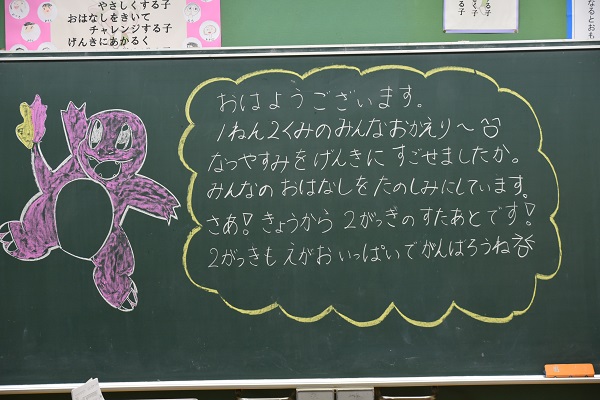 やさしくする子
おはなしをきいて
チャレンジする子
げんきにあかるく
おはようございます。
1ねん2くみのみんなおかえり～
なつやすみをげんきにすごせましたか。
みんなのおはなしをたのしみにしています。
さあ!きょうから2がっきのすたあとです!
2がっきもえがおいっぱいでがんばろうね